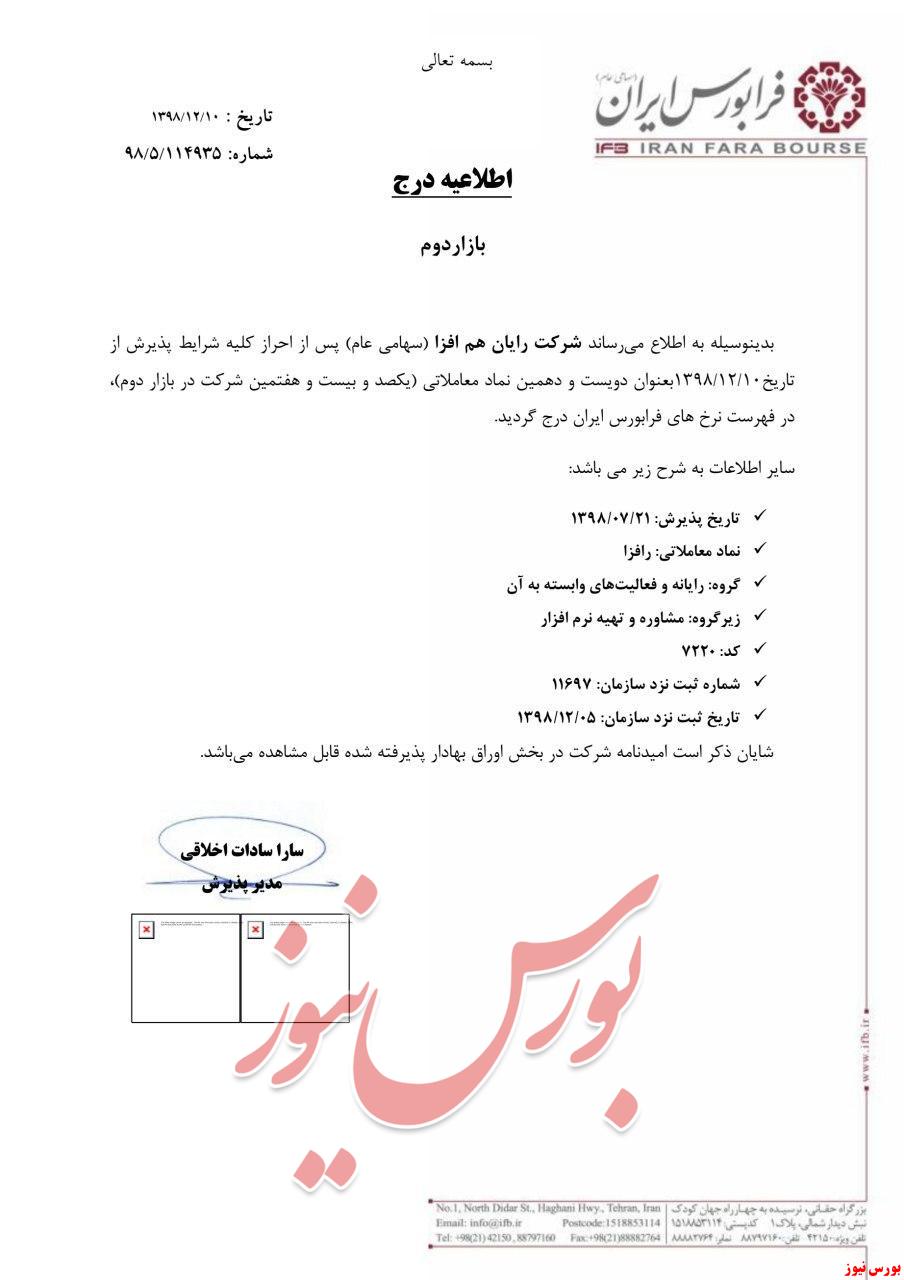 بسمه تعالی
فرابورس ایران
(سهامی عام)
IFB IRAN FARA BOURSE
تاریخ : ۱۳۹۸/۱۲/۱۰
شماره: ۹۸/۵/۱۱۴۹۳۵
اطلاعیه درج
بازاردوم
بدینوسیله به اطلاع می‌رساند شرکت رایان هم افزا (سهامی عام) پس از احراز کلیه شرایط پذیرش از
تاریخ۱۳۹۸/۱۲/۱۰بعنوان دویست و دهمین نماد معاملاتی (یکصد و بیست و هفتمین شرکت در بازار دوم)،
در فهرست نرخ های فرابورس ایران درج گردید.
سایر اطلاعات به شرح زیر می باشد:
✓ تاریخ پذیرش: ۱۳۹۸/۰۷/۲۱
✓ نماد معاملاتی: رافزا
✓ گروه: رایانه و فعالیت‌های وابسته به آن
✓ زیرگروه: مشاوره و تهیه نرم افزار
✓ کد: ۷۲۲۰
✓ شماره ثبت نزد سازمان: ۱۱۶۹۷
✓ تاریخ ثبت نزد سازمان: ۱۳۹۸/۱۲/۰۵
شایان ذکر است امیدنامه شرکت در بخش اوراق بهادار پذیرفته شده قابل مشاهده می‌باشد.
سارا سادات اخلاقی
مدیر پذیرش
بورس نیوز
www.ifb.ir
بزرگراه حقانی، نرسیده به چهارراه جهان کودک
نبش دیدار شمالی، پلاک۱ کدپستی: ۱۵۱۸۸۵۳۱۱۴
تلفن ویژه: ۴۲۱۵۰ تلفن: ۸۸۷۹۷۱۶۰ نمابر: ۸۸۸۸۲۷۶۴
No.1, North Didar St., Haghani Hwy., Tehran, Iran
Email: info@ifb.ir Postcode:1518853114
Tel: +98(21) 42150 , 88797160 Fax:+98(21)88882764
بورس نیوز